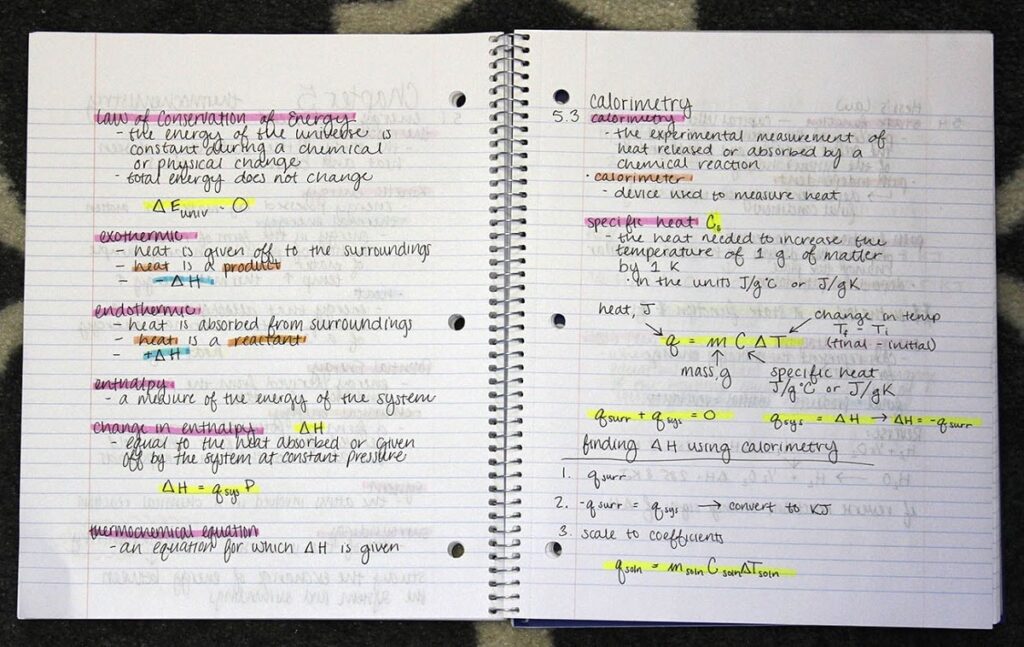 Law of Conservation of Energy
- the energy of the universe is
constant during a chemical
or physical change
- total energy does not change
ΔE univ = 0
exothermic
- heat is given off to the surroundings
- heat is a product
- -ΔH
endothermic
- heat is absorbed from surroundings
- heat is a reactant
- +ΔH
enthalpy
- a measure of the energy of the system
change in enthalpy ΔH
- equal to the heat absorbed or given
off by the system at constant pressure
ΔH = q sys P
thermochemical equation
- an equation for which ΔH is given
calorimetry
5.3 calorimetry
- the experimental measurement of
heat released or absorbed by a
chemical reaction
· calorimeter
- device used to measure heat
specific heat Cs
- the heat needed to increase the
temperature of 1 g of matter
by 1 K
· in the units J/g°C or J/gK
heat, J
change in temp
Tf - Ti
(final - initial)
q = m C ΔT
mass, g
specific heat
J/g°C or J/gK
q surr + q sys = 0
q sys = ΔH → ΔH = -q surr
finding ΔH using calorimetry
1. q surr
2. -q surr = q sys → convert to KJ
3. scale to coefficients
q soln = m soln C soln ΔT soln